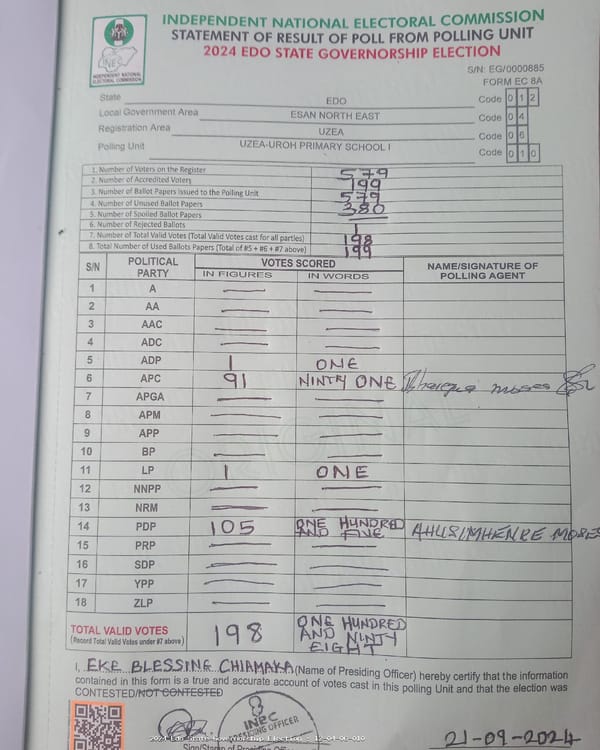 INDEPENDENT NATIONAL ELECTORAL COMMISSION
STATEMENT OF RESULT OF POLL FROM POLLING UNIT
2024 EDO STATE GOVERNORSHIP ELECTION
INEC
INDEPENDENT NATIONAL
ELECTORAL COMMISSION
S/N: EG/0000885
FORM EC 8A
State EDO Code 0 1 2
Local Government Area ESAN NORTH EAST Code 0 4
Registration Area UZEA Code 0 6
Polling Unit UZEA-UROH PRIMARY SCHOOL I Code 0 1 0
1. Number of Voters on the Register 579
2. Number of Accredited Voters 199
3. Number of Ballot Papers issued to the Polling Unit 579
4. Number of Unused Ballot Papers 380
5. Number of Spoiled Ballot Papers —
6. Number of Rejected Ballots 1
7. Number of Total Valid Votes (Total Valid Votes cast for all parties) 198
8. Total Number of Used Ballots Papers (Total of #5 + #6 + #7 above) 199
S/N POLITICAL PARTY VOTES SCORED NAME/SIGNATURE OF POLLING AGENT
IN FIGURES IN WORDS
1 A — —
2 AA — —
3 AAC — —
4 ADC — —
5 ADP 1 ONE
6 APC 91 NINTY ONE moses
7 APGA — —
8 APM — —
9 APP — —
10 BP — —
11 LP 1 ONE
12 NNPP — —
13 NRM — —
14 PDP 105 ONE HUNDRED AND FIVE
15 PRP — —
16 SDP — —
17 YPP — —
18 ZLP — —
TOTAL VALID VOTES 198 ONE HUNDRED AND NINTY EIGHT
(Record Total Valid Votes under #7 above)
I, EKE BLESSING CHIAMAKA (Name of Presiding Officer) hereby certify that the information
contained in this form is a true and accurate account of votes cast in this polling Unit and that the election was
CONTESTED/NOT CONTESTED
INEC
PRESIDING OFFICER
2024 Edo State Governorship Election - 12-04-06-010
21-09-2024